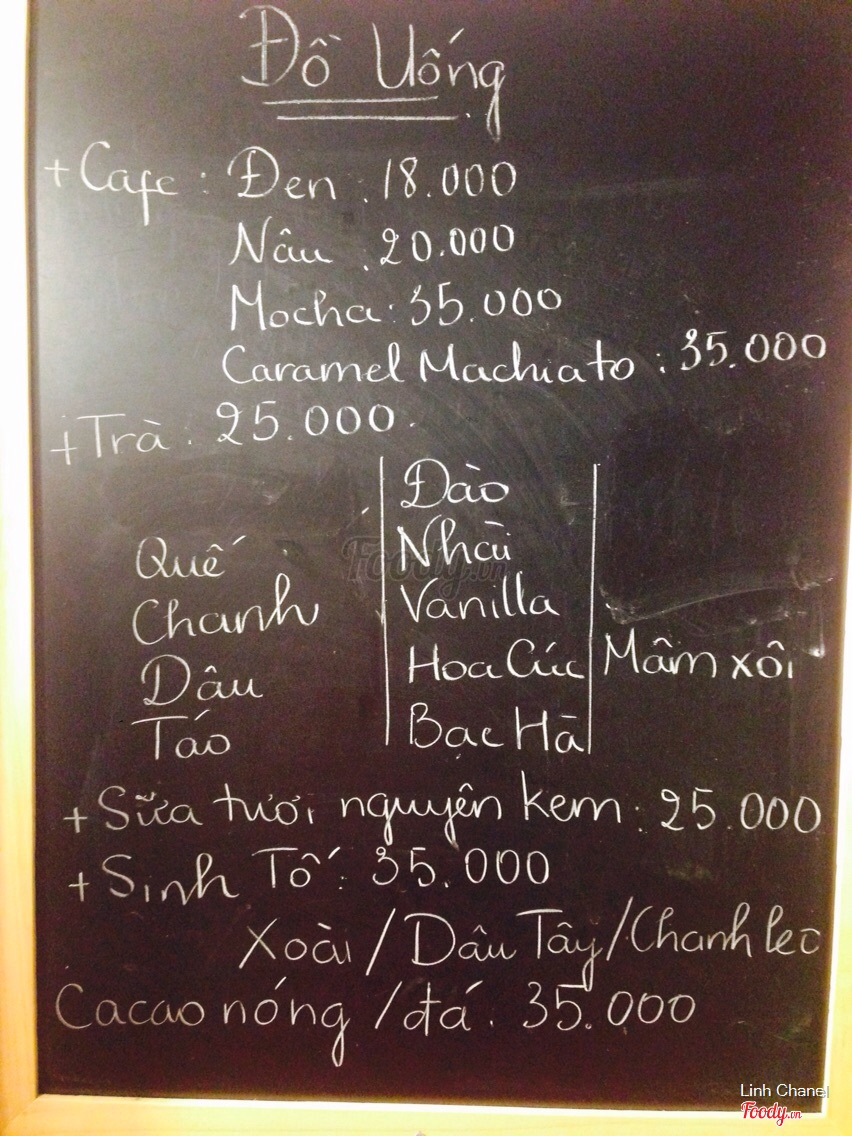 Đồ Uống
+ Cafe : Đen : 18.000
Nâu : 20.000
Mocha : 35.000
Caramel Machiato : 35.000
+ Trà : 25.000
Quế
Chanh
Dâu
Táo
Đào
Nhài
Vanilla
Hoa Cúc
Bạc Hà
Mâm xôi
+ Sữa tươi nguyên kem : 25.000
+ Sinh Tố : 35.000
Xoài / Dâu Tây / Chanh leo
Cacao nóng / đá : 35.000
Foody.vn
Linh Chanel
Foody.vn